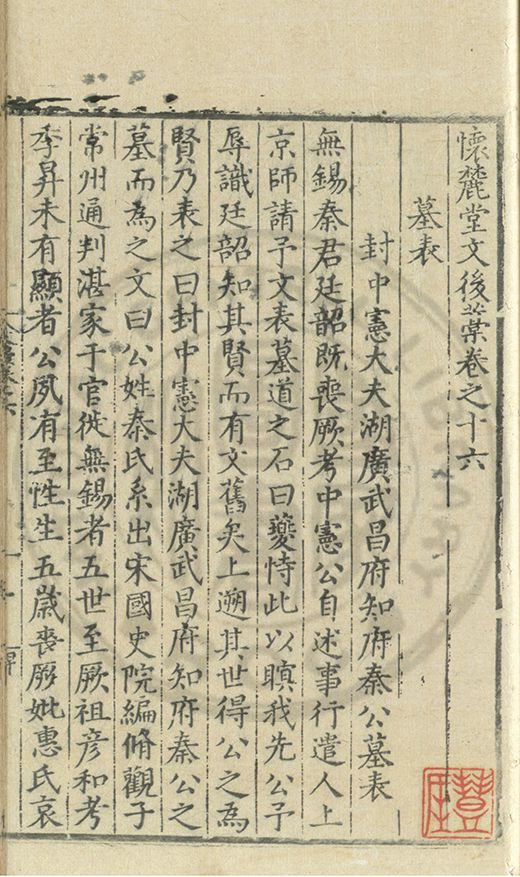 懷麓堂文後藁卷之十六
墓表
封中憲大夫湖廣武昌府知府秦公墓表
無錫秦君廷韶既喪厥考中憲公自述事行遣人上
京師請予文表墓道之石曰夔恃此以瞑我先公予
辱識廷韶知其賢而有文舊矣上遡其世得公之為
賢乃表之曰封中憲大夫湖廣武昌府知府秦公之
墓而為之文曰公姓秦氏系出宋國史院編脩觀子
常州通判湛家于官徙無錫者五世至厥祖彥和考
季昇未有顯者公夙有至性生五歲喪厥妣惠氏哀